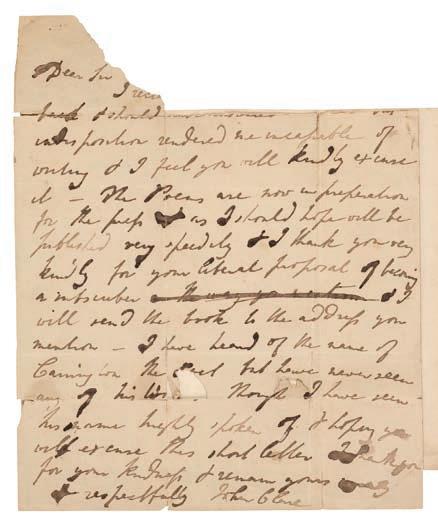 Dear Sir
I rece
back & should
indisposition rendered me incapable of
writing & I feel you will kindly excuse
it – The Poems are now in preparation
for the press & as I should hope will be
published very speedily & I thank you very
kindly for your liberal proposal of becoming
a subscriber & I
will send the book to the address you
mention – I have heard of the name of
Carrington the Poet but have never seen
any of his Though I have seen
his name highly spoken of & hoping you
will excuse this short letter I thank you
for your kindness & remain yours
& respectfully John Clare